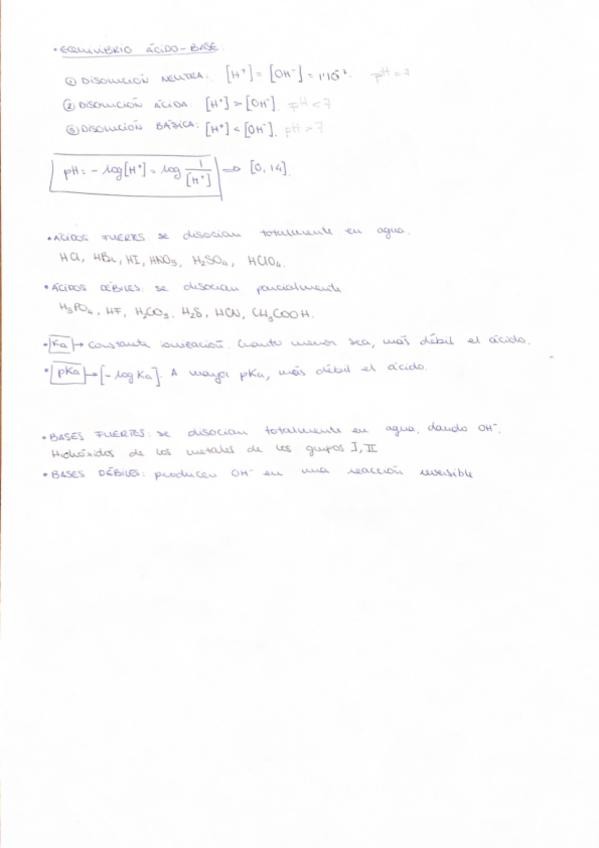 • EQUILIBRIO ÁCIDO-BASE.
① DISOLUCIÓN NEUTRA: [H⁺] = [OH⁻] = 1'10⁻⁷. pH = 7
② DISOLUCIÓN ÁCIDA: [H⁺] > [OH⁻]. pH < 7
③ DISOLUCIÓN BÁSICA: [H⁺] < [OH⁻]. pH > 7
pH = - log[H⁺] = log 1/[H⁺] ⇒ [0, 14].
• ÁCIDOS FUERTES: se disocian totalmente en agua.
HCl, HBr, HI, HNO₃, H₂SO₄, HClO₄.
• ÁCIDOS DÉBILES: se disocian parcialmente
H₃PO₄, HF, H₂CO₃, H₂S, HCN, CH₃COOH.
• Ka → Constante ionización. Cuanto menor sea, más débil el ácido.
• pKa → [- log Ka]. A mayor pKa, más débil el ácido.
• BASES FUERTES: se disocian totalmente en agua, dando OH⁻.
Hidróxidos de los metales de los grupos I, II
• BASES DÉBILES: producen OH⁻ en una reacción reversible